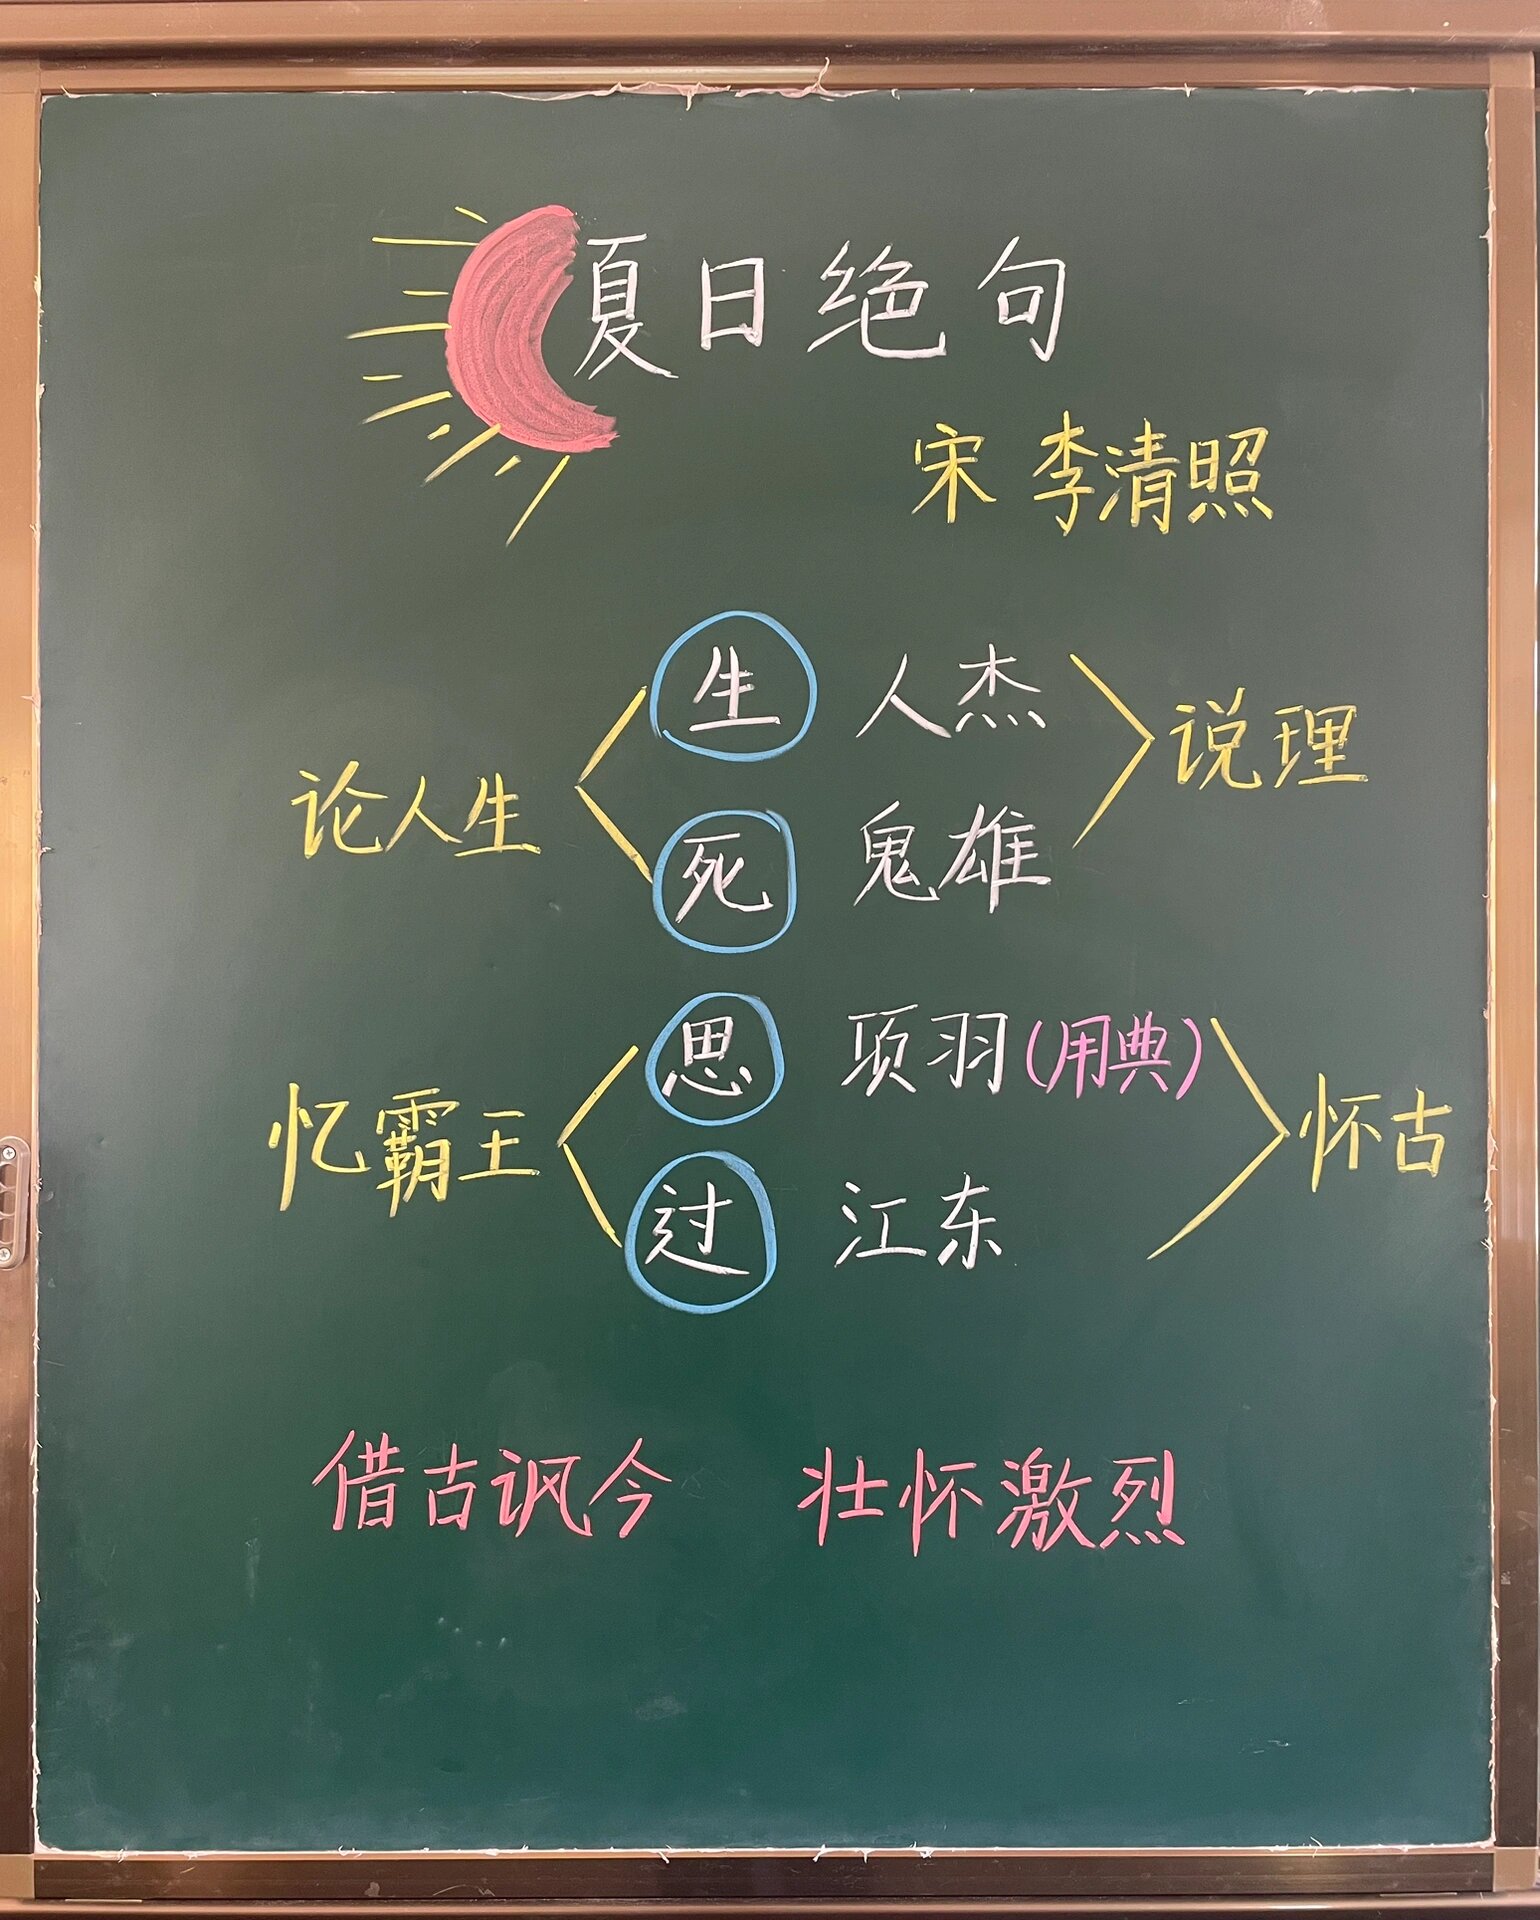 夏日绝句
宋 李清照
论人生
生 人杰
死 鬼雄
说理
忆霸王
思 项羽(用典)
过 江东
怀古
借古讽今 壮怀激烈